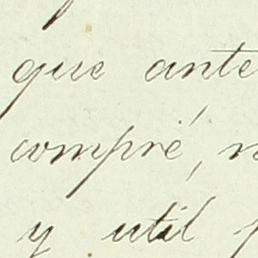 que ante
compré,
y util